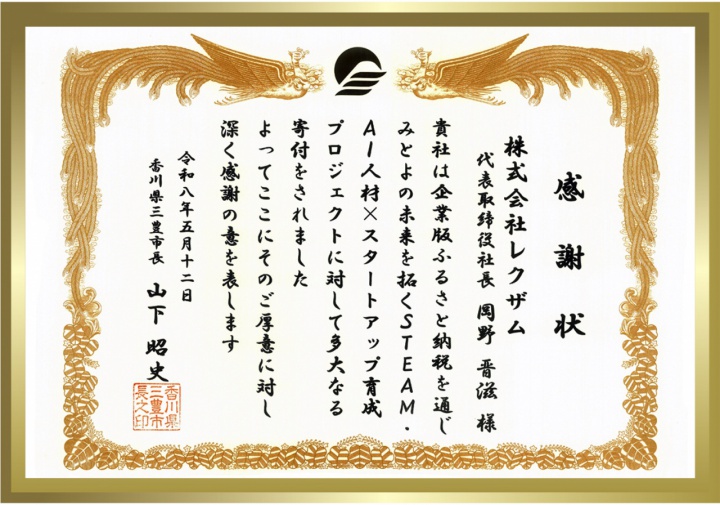 感謝状
株式会社レクザム
代表取締役社長 岡野 晋滋 様
貴社は企業版ふるさと納税を通じ
みとよの未来を拓くSTEAM・
AI人材×スタートアップ育成
プロジェクトに対して多大なる
寄付をされました
よってここにそのご厚意に対し
深く感謝の意を表します
令和八年五月十二日
香川県三豊市長 山下 昭史
香川県
三豊市
長之印